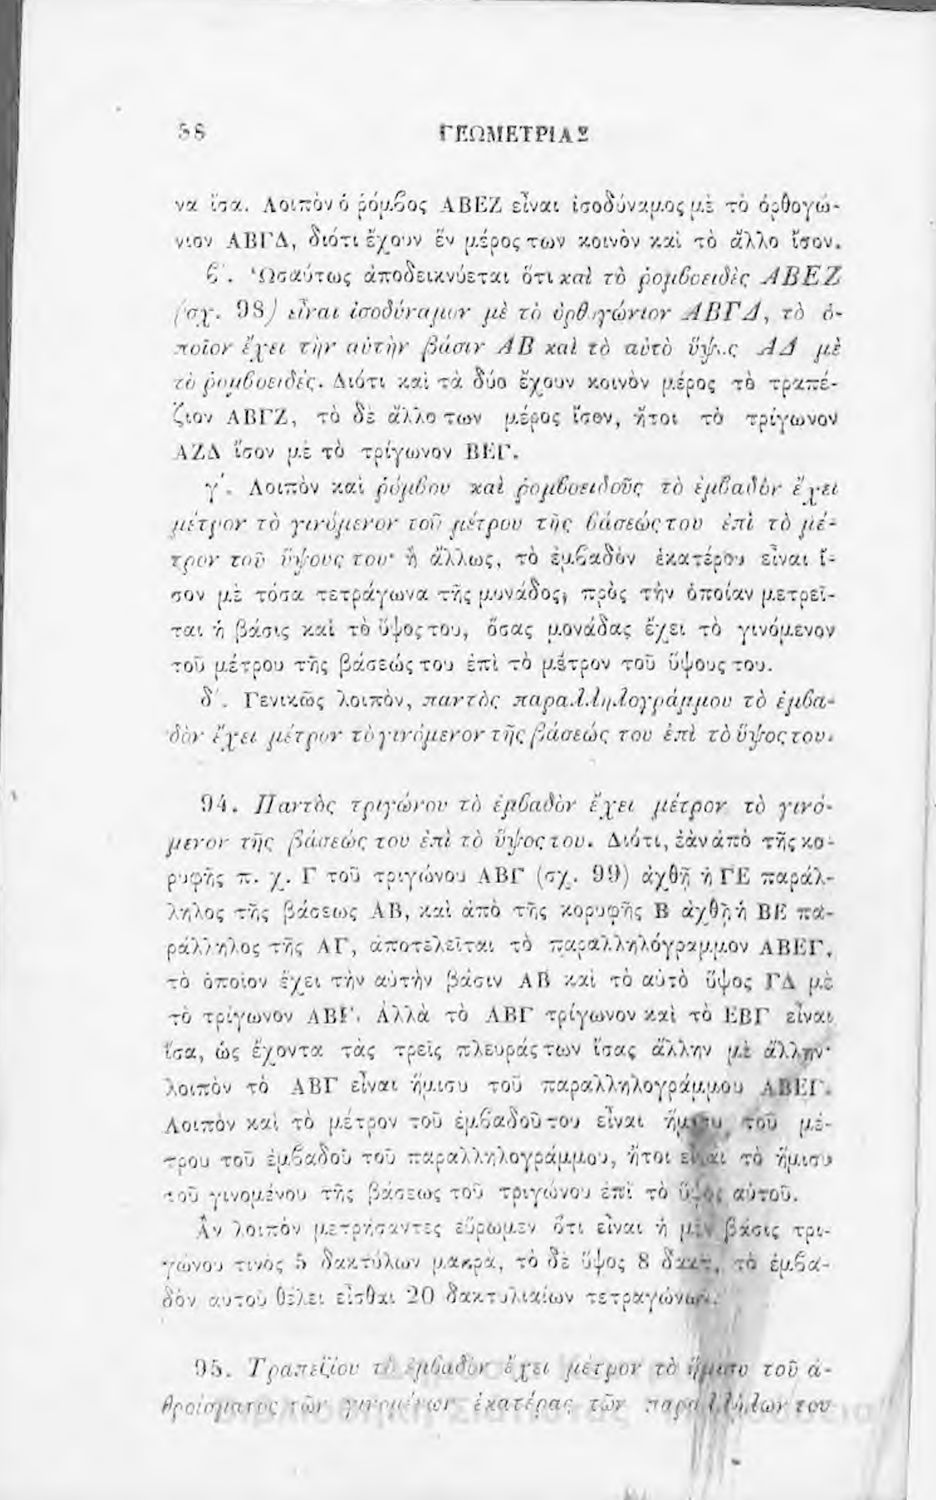 58 ΓΕΩΜΕΤΡΙΑΣ
να ἴσα. Λοιπὸν ὁ ῥόμβος ΑΒΕΖ εἶναι ἰσοδύναμος μὲ τὸ ὀρθογώ-
νιον ΑΒΓΔ, διότι ἔχουν ἓν μέρος των κοινὸν καὶ τὸ ἄλλο ἴσον.
β΄. Ὡσαύτως ἀποδεικνύεται ὅτι καὶ τὸ ῥομβοειδὲς ΑΒΕΖ
(σχ. 98) εἶναι ἰσοδύναμον μὲ τὸ ὀρθογώνιον ΑΒΓΔ, τὸ ὁ-
ποῖον ἔχει τὴν αὐτὴν βάσιν ΑΒ καὶ τὸ αὐτὸ ὕψος ΑΔ μὲ
τὸ ῥομβοειδές. Διότι καὶ τὰ δύο ἔχουν κοινὸν μέρος τὸ τραπέ-
ζιον ΑΒΓΖ, τὸ δὲ ἄλλο των μέρος ἴσον, ἤτοι τὸ τρίγωνον
ΑΖΔ ἴσον μὲ τὸ τρίγωνον ΒΕΓ.
γ΄. Λοιπὸν καὶ ῥόμβου καὶ ῥομβοειδοῦς τὸ ἐμβαδὸν ἔχει
μέτρον τὸ γινόμενον τοῦ μέτρου τῆς βάσεώς του ἐπὶ τὸ μέ-
τρον τοῦ ὕψους του· ἢ ἄλλως, τὸ ἐμβαδὸν ἑκατέρου εἶναι ἴ-
σον μὲ τόσα τετράγωνα τῆς μονάδος, πρὸς τὴν ὁποίαν μετρεῖ-
ται ἡ βάσις καὶ τὸ ὕψος του, ὅσας μονάδας ἔχει τὸ γινόμενον
τοῦ μέτρου τῆς βάσεώς του ἐπὶ τὸ μέτρον τοῦ ὕψους του.
δ΄. Γενικῶς λοιπὸν, παντὸς παραλληλογράμμου τὸ ἐμβα-
δὸν ἔχει μέτρον τὸ γινόμενον τῆς βάσεώς του ἐπὶ τὸ ὕψος του.
94. Παντὸς τριγώνου τὸ ἐμβαδὸν ἔχει μέτρον τὸ γινό-
μενον τῆς βάσεώς του ἐπὶ τὸ ὕψος του. Διότι, ἐὰν ἀπὸ τῆς κο-
ρυφῆς π. χ. Γ τοῦ τριγώνου ΑΒΓ (σχ. 99) ἀχθῇ ἡ ΓΕ παράλ-
ληλος τῆς βάσεως ΑΒ, καὶ ἀπὸ τῆς κορυφῆς Β ἀχθῇ ἡ ΒΕ πα-
ράλληλος τῆς ΑΓ, ἀποτελεῖται τὸ παραλληλόγραμμον ΑΒΕΓ,
τὸ ὁποῖον ἔχει τὴν αὐτὴν βάσιν ΑΒ καὶ τὸ αὐτὸ ὕψος ΓΔ μὲ
τὸ τρίγωνον ΑΒΓ. Ἀλλὰ τὸ ΑΒΓ τρίγωνον καὶ τὸ ΕΒΓ εἶναι
ἴσα, ὡς ἔχοντα τὰς τρεῖς πλευράς των ἴσας ἄλλην μὲ ἄλλην·
λοιπὸν τὸ ΑΒΓ εἶναι ἥμισυ τοῦ παραλληλογράμμου ΑΒΕΓ.
Λοιπὸν καὶ τὸ μέτρον τοῦ ἐμβαδοῦ του εἶναι ἥμισυ τοῦ μέ-
τρου τοῦ ἐμβαδοῦ τοῦ παραλληλογράμμου, ἤτοι εἶναι τὸ ἥμισυ
τοῦ γινομένου τῆς βάσεως τοῦ τριγώνου ἐπὶ τὸ ὕψος αὐτοῦ.
Ἂν λοιπὸν μετρήσαντες εὕρωμεν ὅτι εἶναι ἡ μὲν βάσις τρι-
γώνου τινὸς 5 δακτύλων μακρὰ, τὸ δὲ ὕψος 8 δακτ, τὸ ἐμβα-
δὸν αὐτοῦ θέλει εἶσθαι 20 δακτυλιαίων τετραγώνων.
95. Τραπεζίου τὸ ἐμβαδὸν ἔχει μέτρον τὸ ἥμισυ τοῦ ἀ-
θροίσματος τῶν γινομένων ἑκατέρας τῶν παραλλήλων του